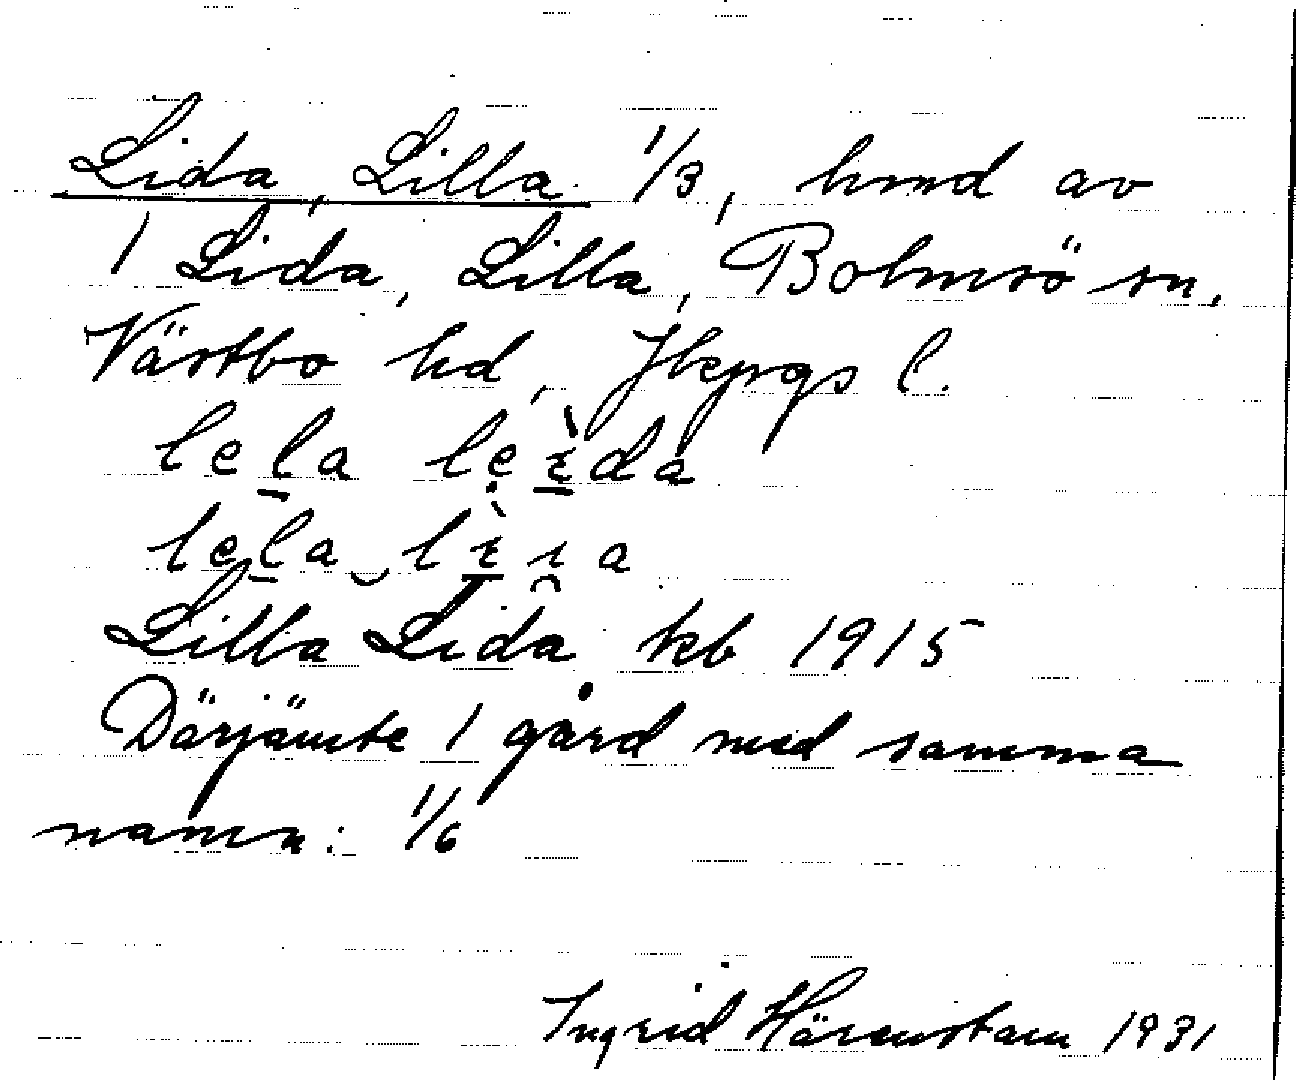 Lida, Lilla 1/3, hmd av
1 Lida, Lilla, Bolmsö sn,
Västbo hd, Jkpgs l.
Lilla Lida kb 1915
Därjämte 1 gård med samma
namn: 1/6
Ingrid Härenstam 1931